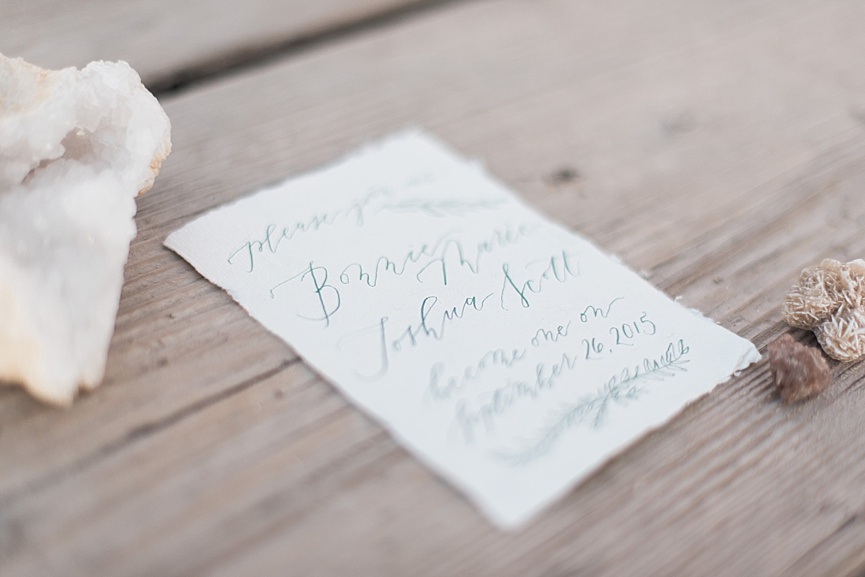 please join
Bonnie Marie
Joshua Scott
become one on
September 26, 2015